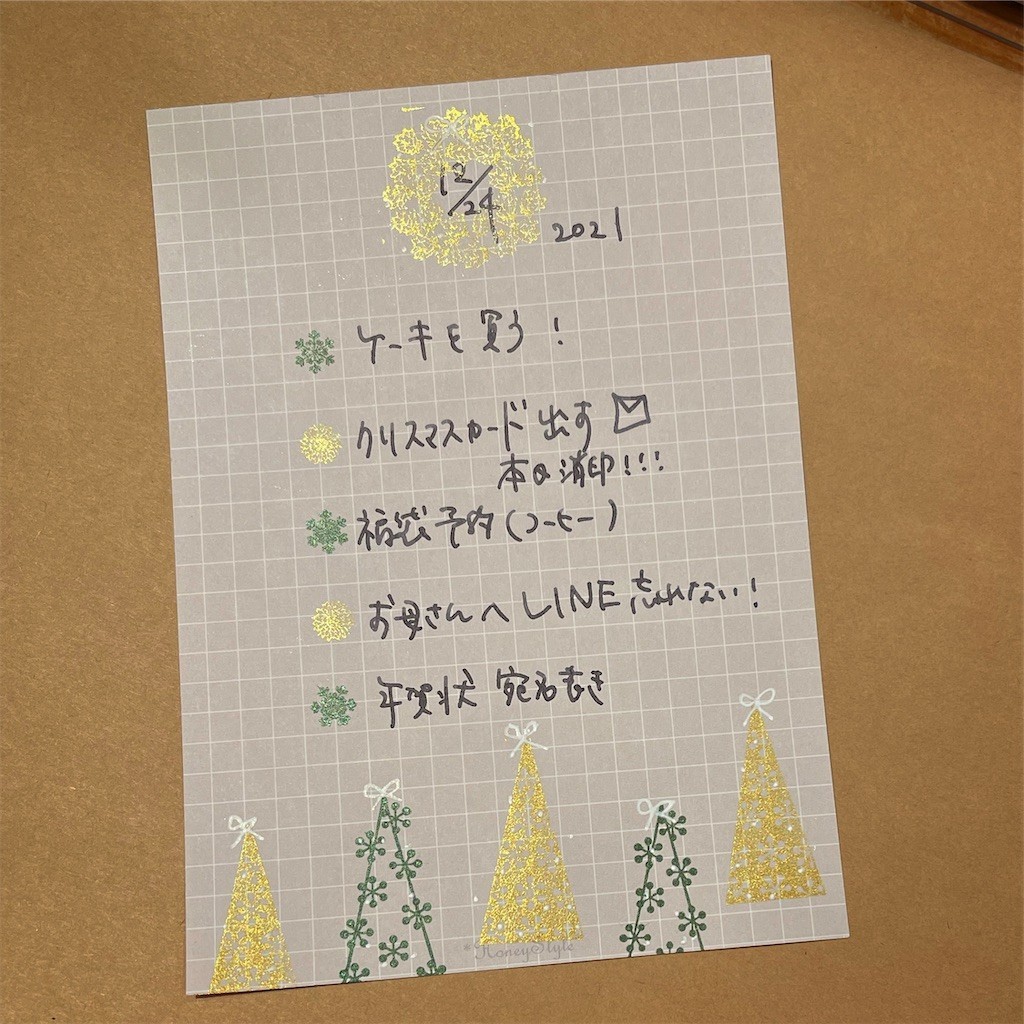 12/24
2021
ケーキを買う!
クリスマスカード出す
本日消印!!!
福袋予約(コーヒー)
お母さんへLINE忘れない!
年賀状 宛名書き
*HoneyStyle